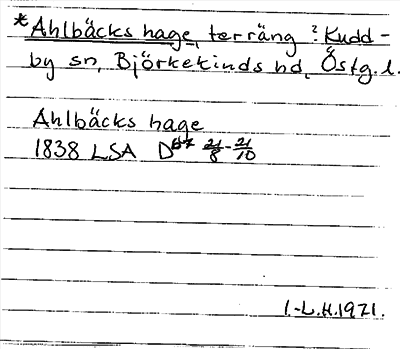 *Ahlbäcks hage, terräng i Kudd-
by sn, Björkekinds hd, Östg.l.
Ahlbäcks hage
1838 LSA D 21/8-21/10
I.-L.H.1971.